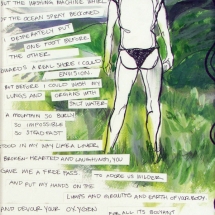 BUT THE WASHING MACHINE WHIRL
OF THE OCEAN SPRAY BECKONED
I DESPERATELY PUT
ONE FOOT BEFORE
THE OTHER
TOWARDS A REAL SHORE I COULD
ENVISION.
BUT BEFORE I COULD WASH MY
LUNGS AND ORGANS WITH
SALT WATER
A MOUNTAIN SO BURLY
SO IMPOSSIBLE
SO STEADFAST
STOOD IN MY WAY
BROKEN-HEARTED AND YOU
GAVE ME A FREE PASS TO ADORE US WILDER.
AND PUT MY HANDS ON THE
LIMBS AND AND EARTH OF YOUR BODY
AND DEVOUR YOUR OXYGEN
FOR ALL ITS BOUNTY